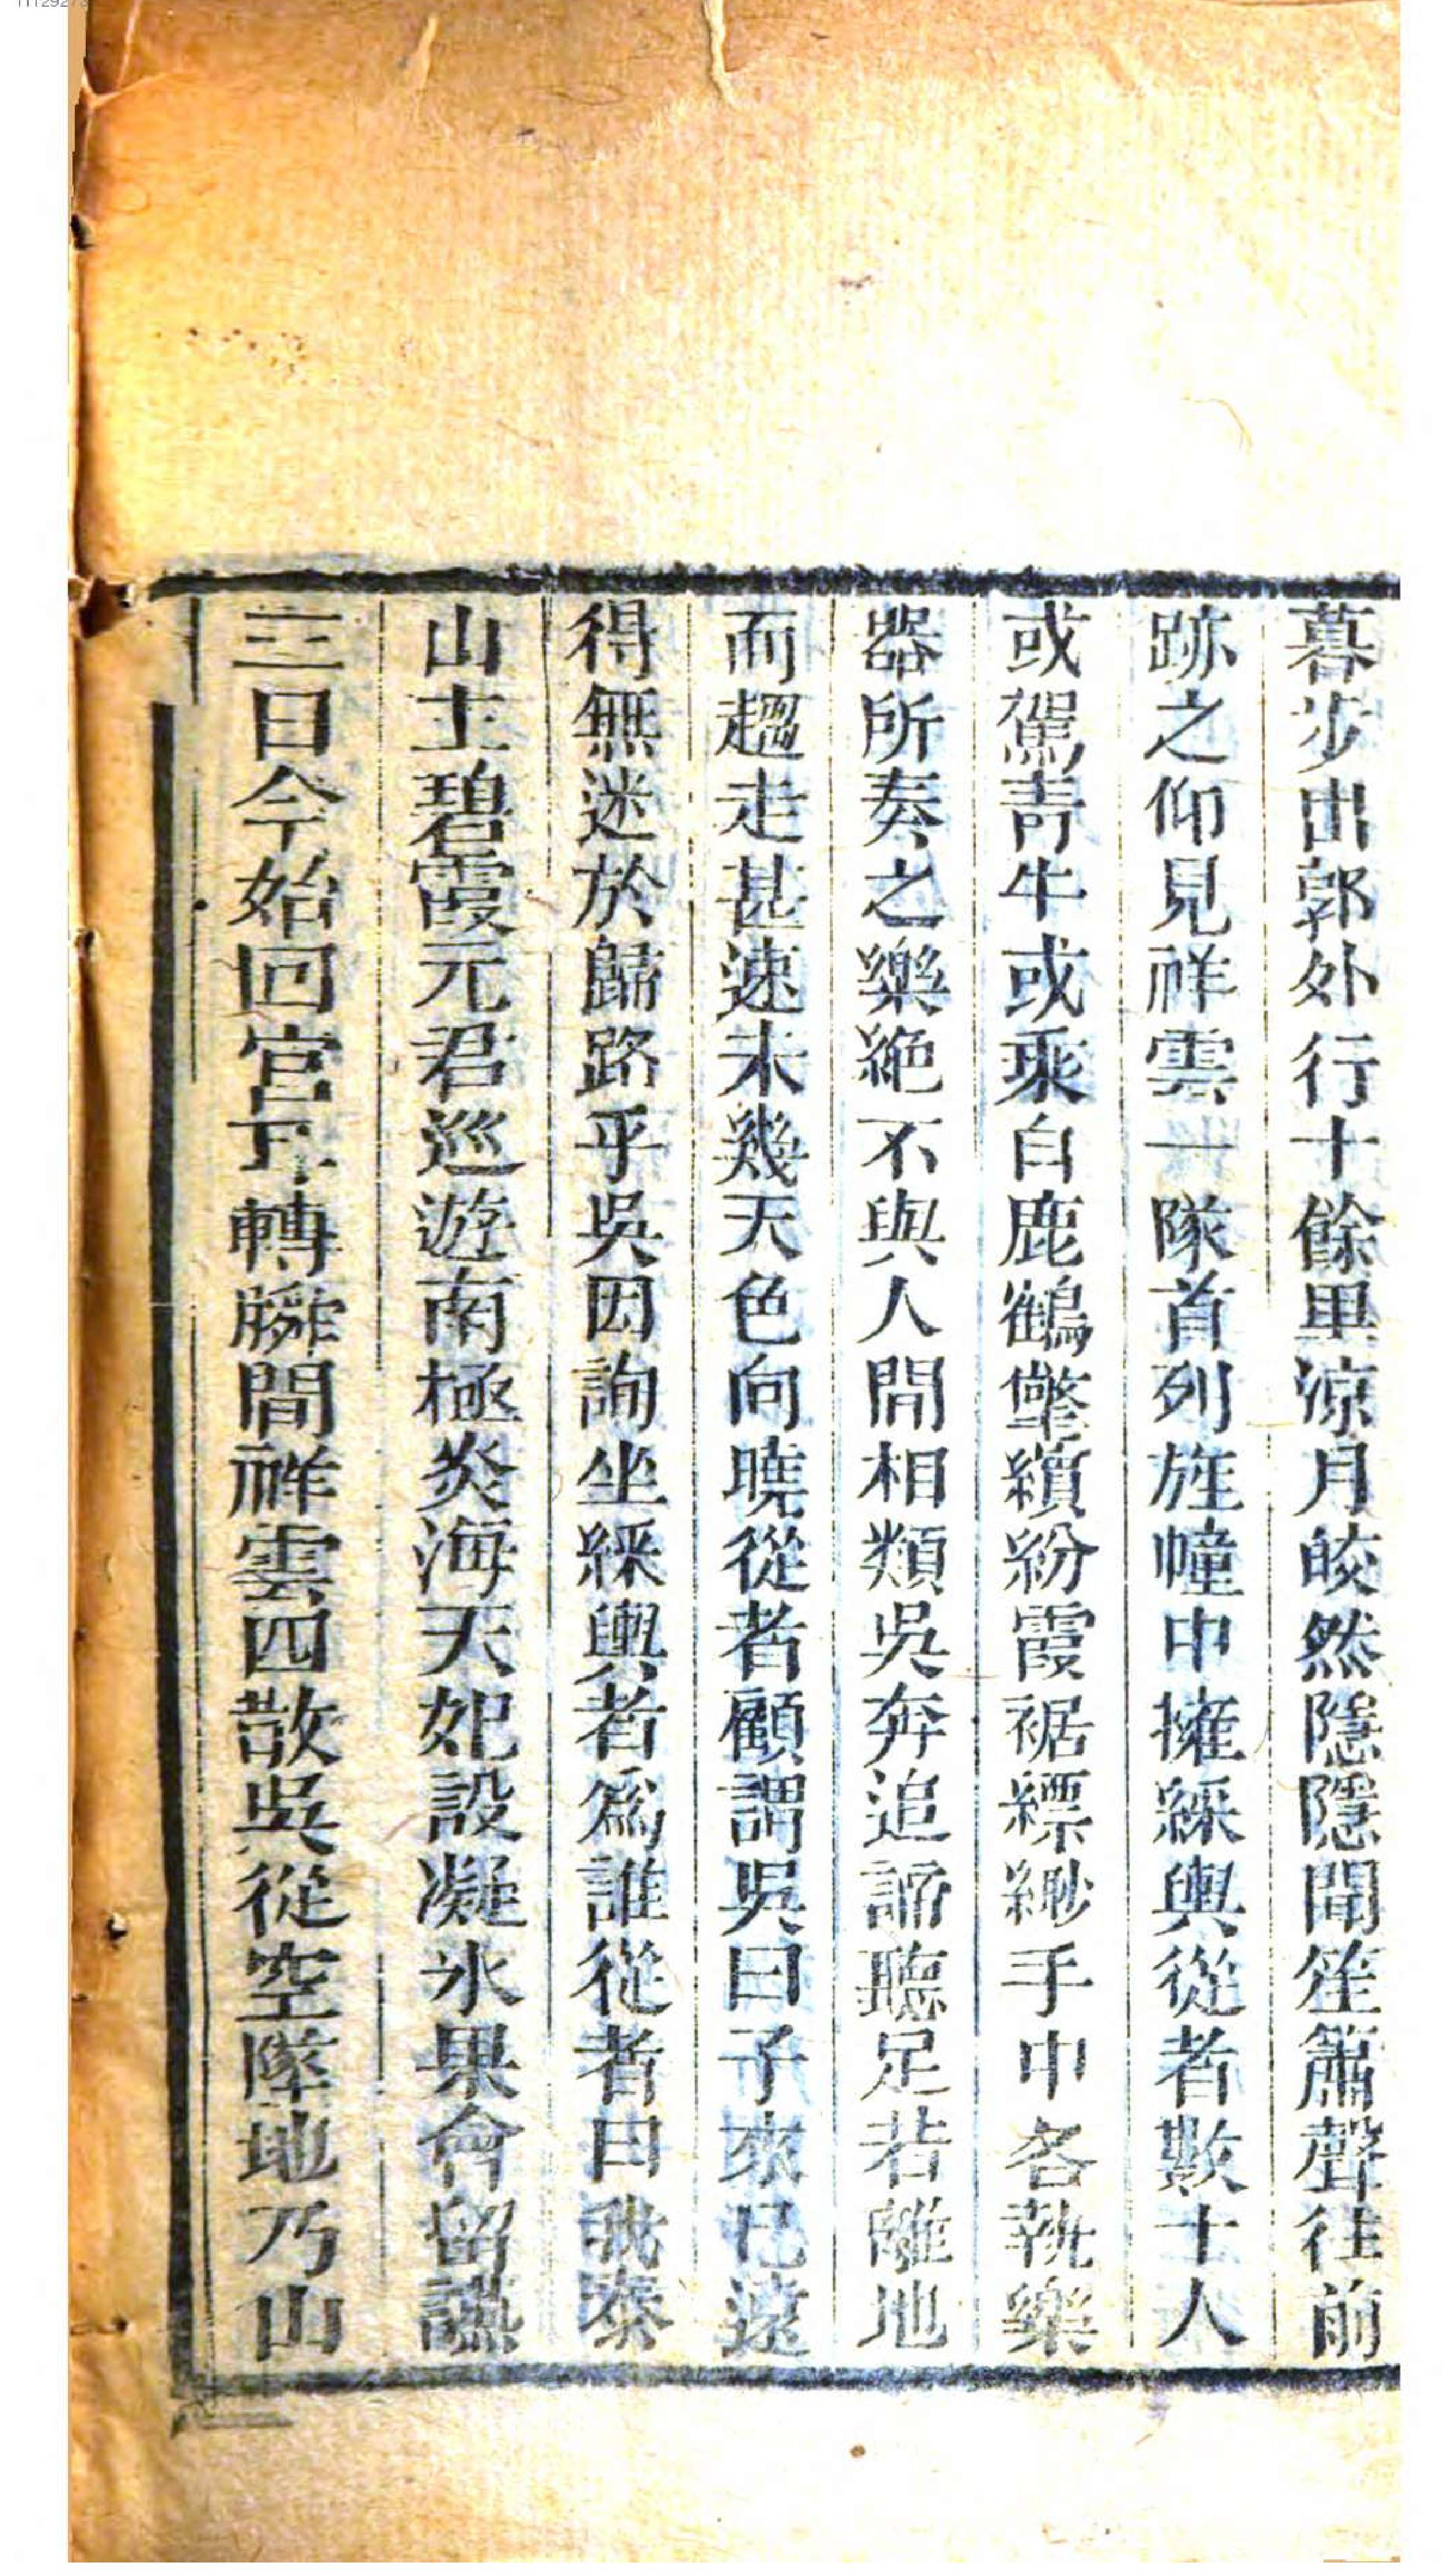 暮步出郭外行十餘里涼月皎然隱隱聞笙簫聲往前
跡之仰見祥雲一隊首列旌幢中擁綵輿從者數十人
或駕靑牛或乘白鹿鶴氅繽紛霞裾縹緲手中各執樂
器所奏之樂絕不與人間相類吳奔追諦聽足若離地
而趨走甚速未幾天色向曉從者顧謂吳曰子來已遠
得無迷於歸路乎吳因詢坐綵輿者爲誰從者曰我泰
山主碧霞元君巡遊南極炎海天妃設凝氷果會留讌
三日今始回宮耳轉瞬間祥雲四散吳從空墜地乃山